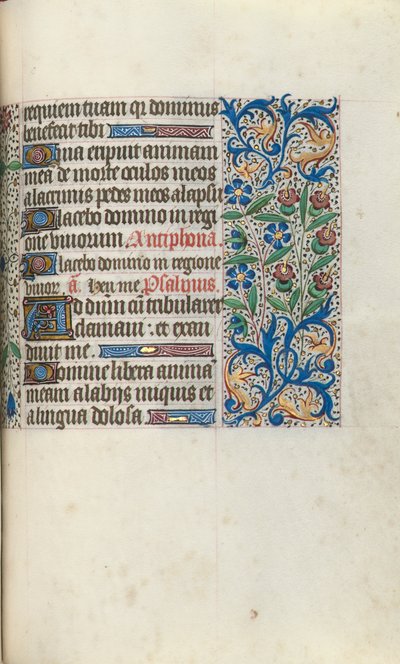 requiem tuam q̄ dominus
benefecit tibi
Quia eripuit animam
meā de morte oculos meos
a lacrimis pedes meos a lapsu
Placebo domino in regi
one vivorum Antiphona.
Placebo domino in regione
vivor. a. Heu me Psalmus.
Ad dnm cū tribularer
clamavi : et exau
divit me.
Domine libera animā
meam a labiis iniquis et
a lingua dolosa